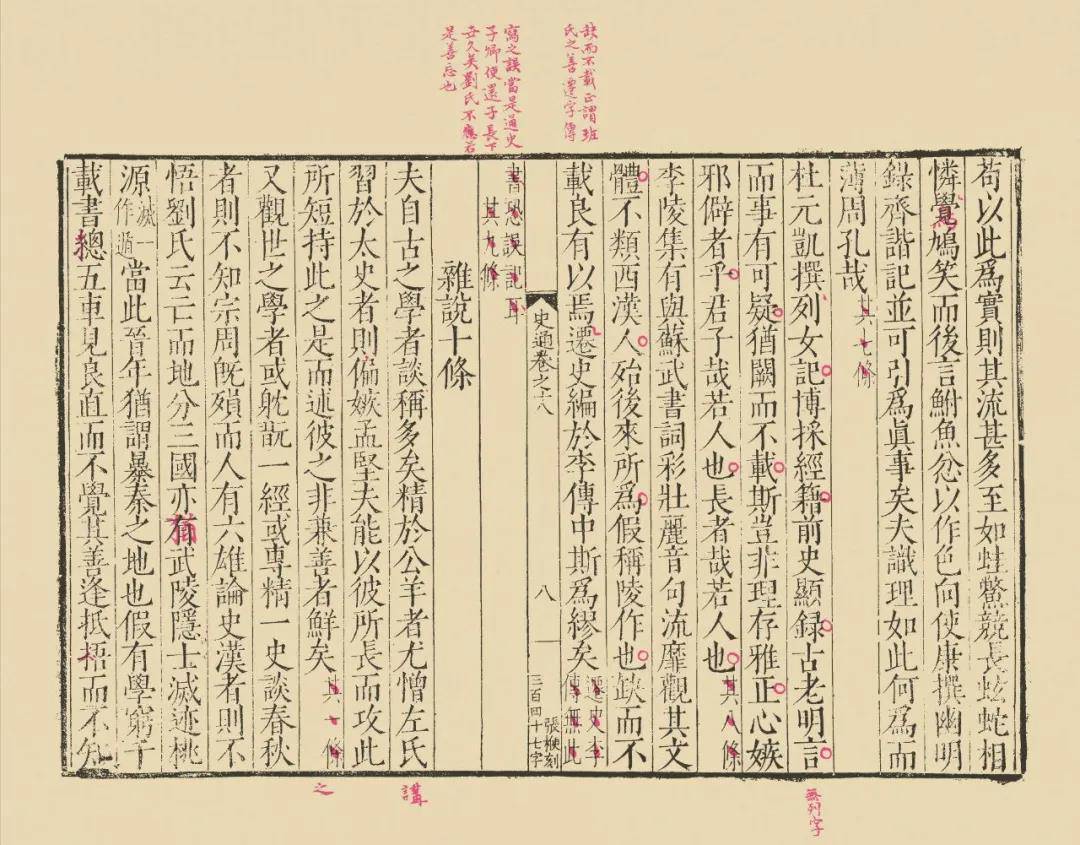 缺而不載正謂班
氏之善遷字傳
寫之誤當是通史
子卿使還子長下
世久矣劉氏不應若
是善忘也
苟以此爲實則其流甚多至如蛙鱉競長蚿蛇相
憐鸴鳩笑而後言鮒魚忿以作色向使康撰幽明
錄齊諧記並可引爲眞事矣夫識理如此何爲而
薄周孔哉其七條
杜元凱撰列女記博採經籍前史顯録古老明言
而事有可疑猶闕而不載斯豈非理存雅正心嫉
邪僻者乎君子哉若人也長者哉若人也其八條
李陵集有與蘇武書詞彩壯麗音句流靡觀其文
體不類西漢人殆後來所爲假稱陵作也缺而不
載良有以焉遷史編於李傳中斯爲繆矣遷史李
傳無此
書恐誤記耳
其九條
史通卷之十八
八
三百四十七字
張樧刻
雜說十條
夫自古之學者談稱多矣精於公羊者尤憎左氏
習於太史者則偏嫉孟堅夫能以彼所長而攻此
所短持此之是而述彼之非兼善者鮮矣其一條
又觀世之學者或躭翫一經或專精一史談春秋
者則不知宗周旣殞而人有六雄論史漢者則不
悟劉氏云亡而地分三國亦猶武陵隱士滅迹桃
源滅一
作遁當此晉年猶謂暴秦之地也假有學窮千
載書總五車見良直而不覺其善逢抵捂而不知
無列字
講
之